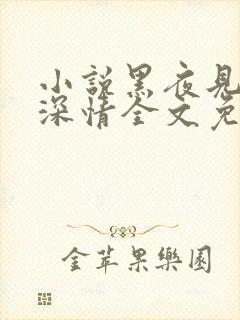 小說黑夜見
深情全文免
金苹果樂園